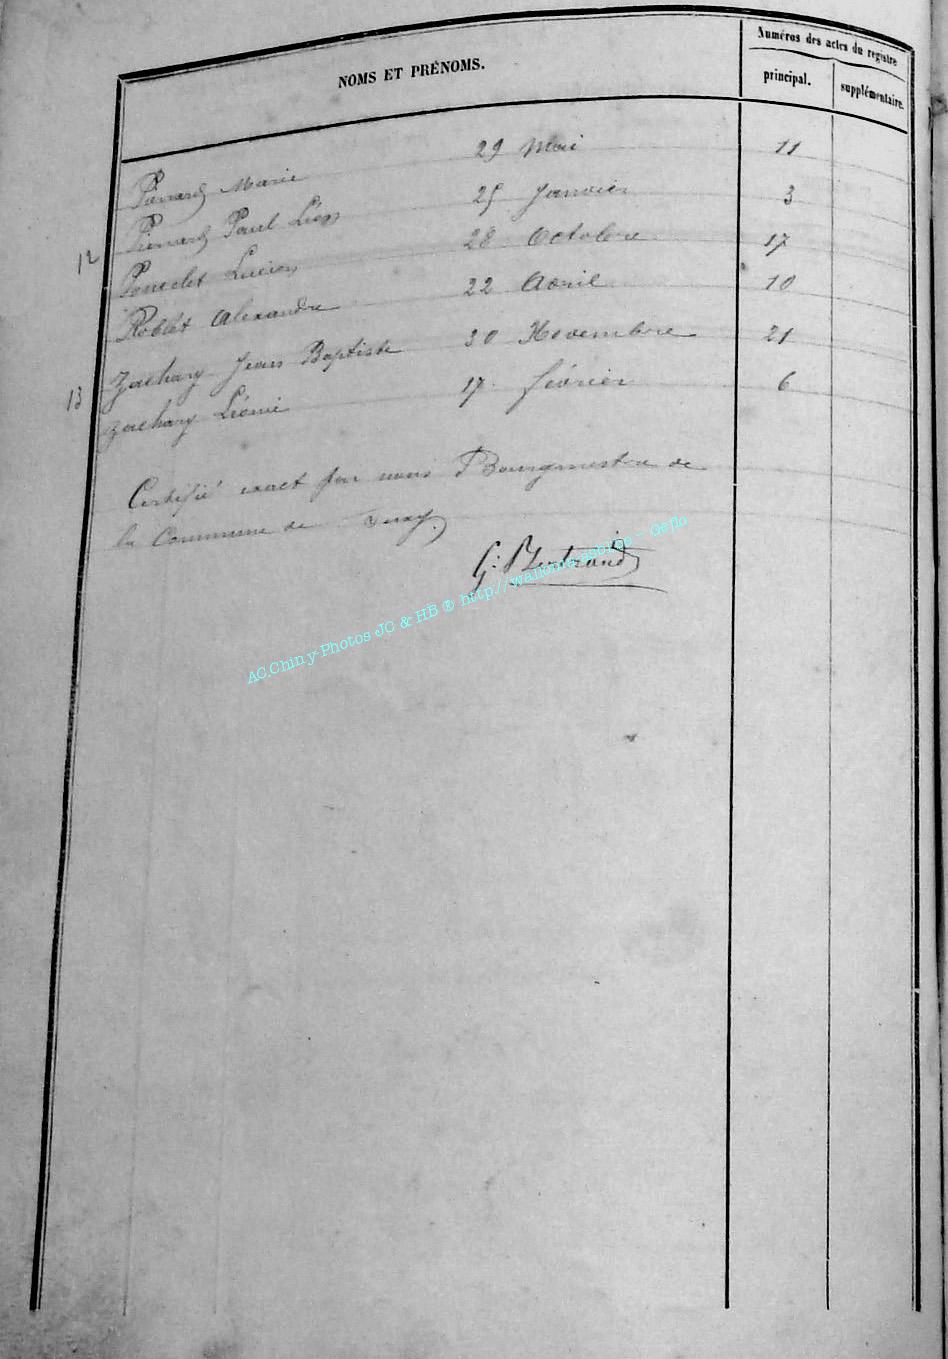 NOMS ET PRÉNOMS.
Numéros des actes du registre
principal.
supplémentaire.
Pierrard Marie 29 Mai 11
Pierrard Paul Léon 25 Janvier 3
12 Poncelet Lucien 28 Octobre 17
Roblet Alexandre 22 Avril 10
Zachary Jean Baptiste 30 Novembre 21
13 Zachary Léonie 17 février 6
Certifié exact par nous Bourgmestre de
la Commune de
G. Bertrand
AC.Chiny-Photos JC & HB ® http://wallonia.asbl.be - Geflo